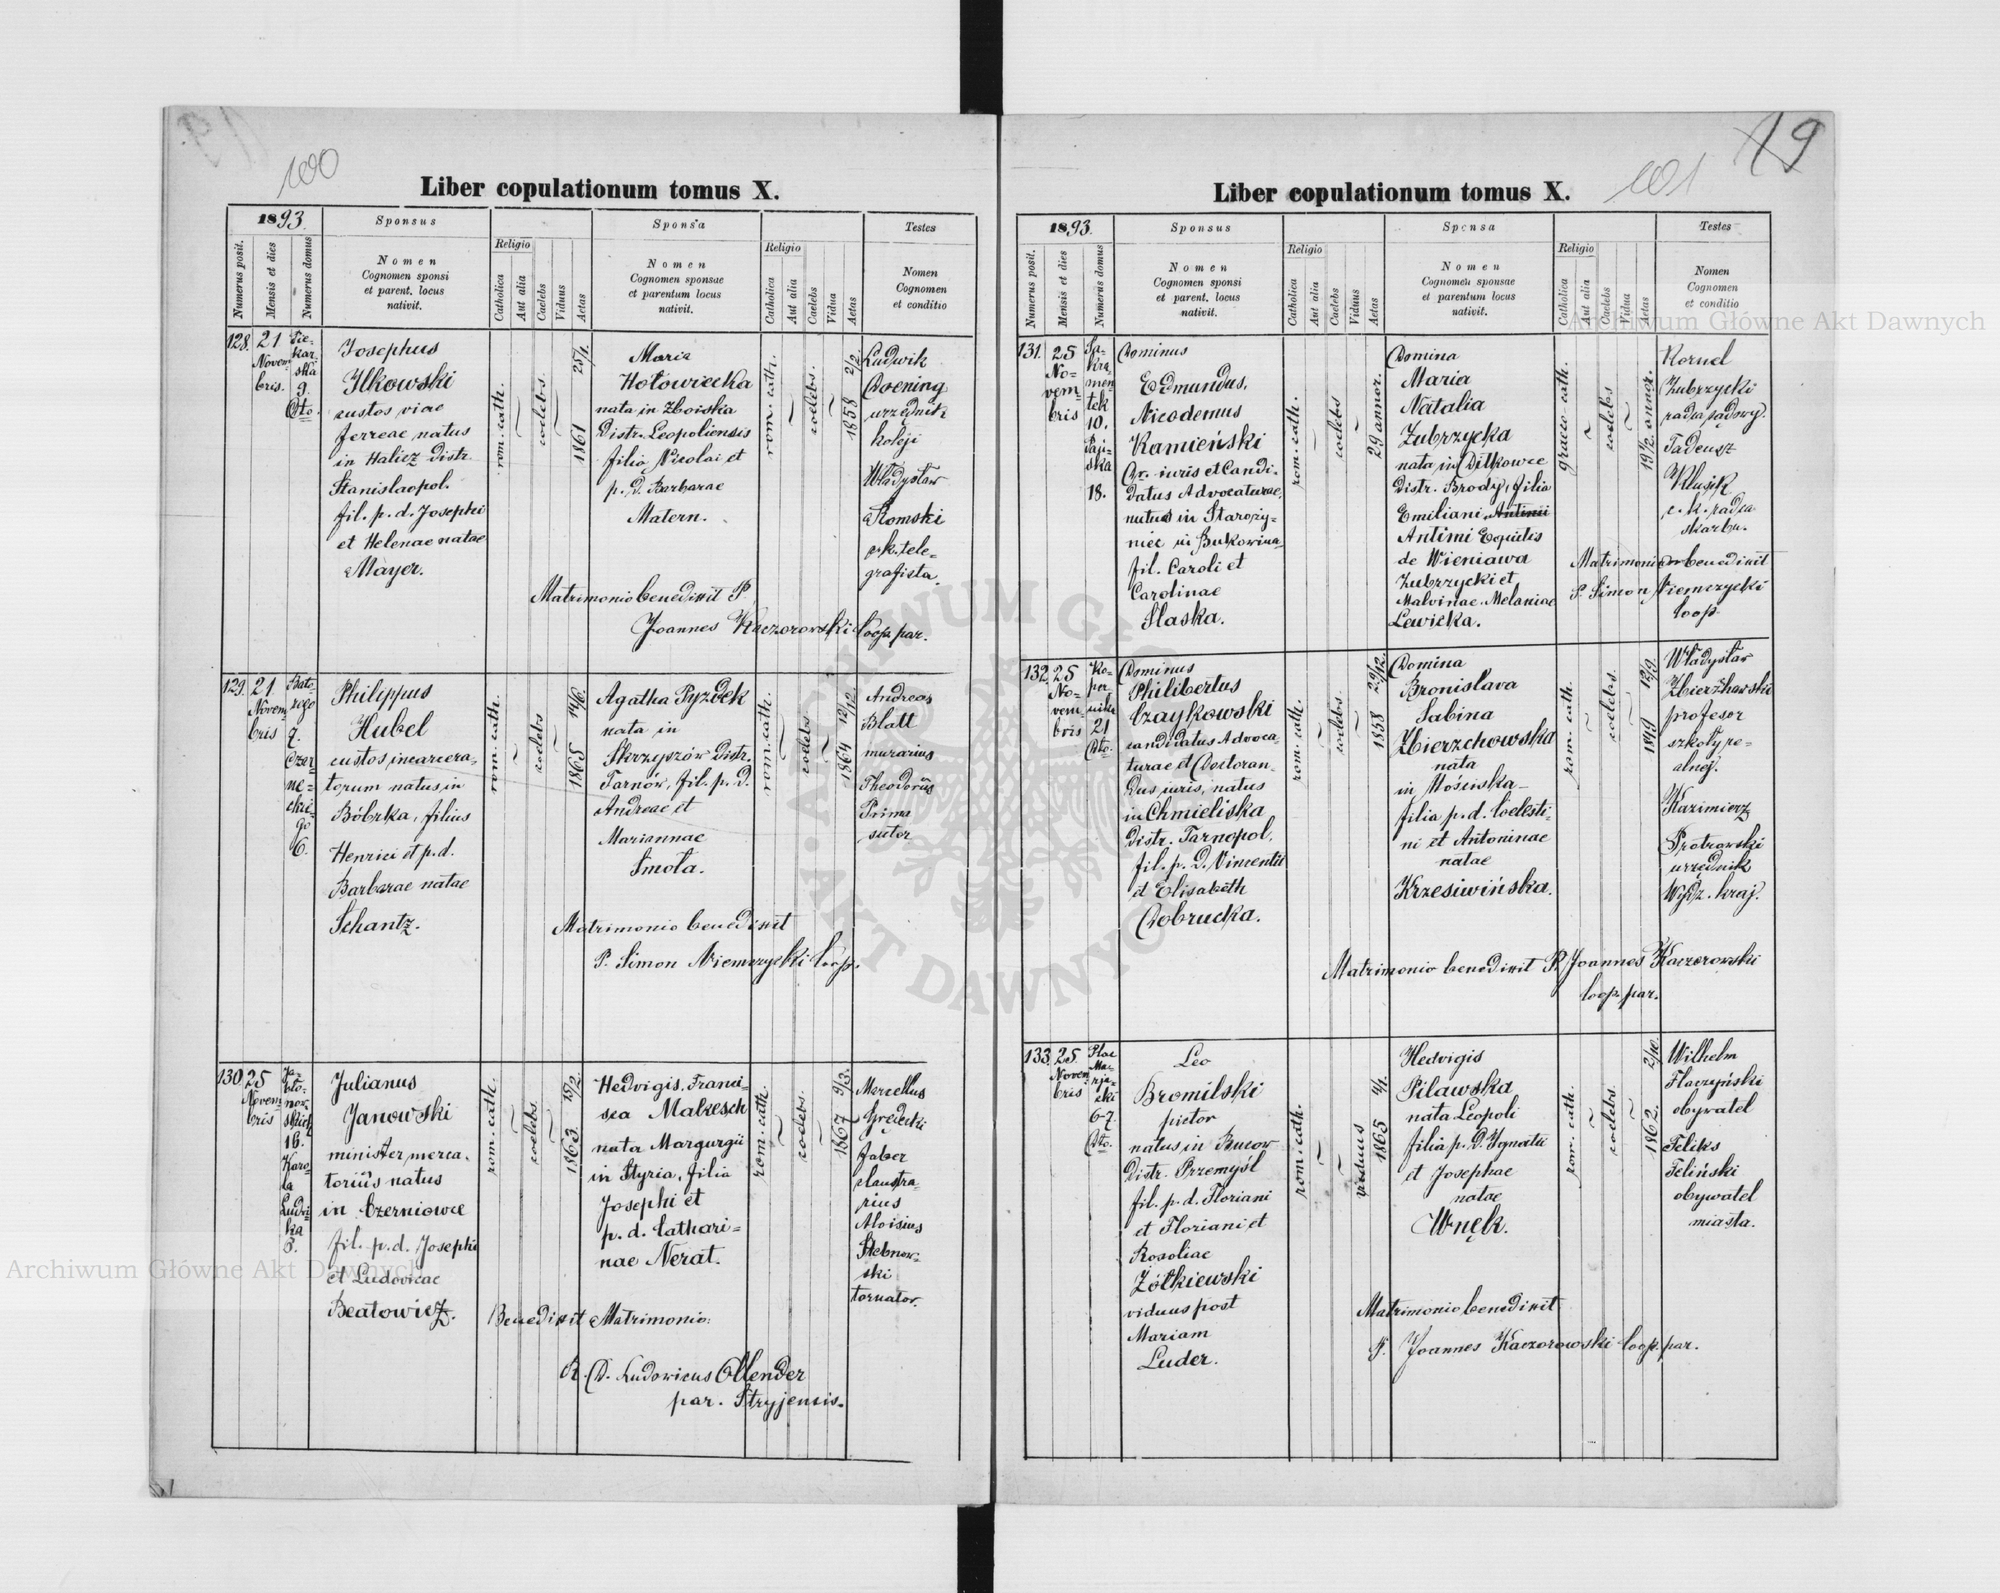 100
Liber copulationum tomus X.
1893.
Sponsus
Sponsa
Testes
Numerus posit.
Mensis et dies
Numerus domus
Nomen
Cognomen sponsi
et parent. locus
nativit.
Religio
Catholica
Aut alia
Caelebs
Viduus
Aetas
Nomen
Cognomen sponsae
et parentum locus
nativit.
Religio
Catholica
Aut alia
Caelebs
Vidua
Aetas
Nomen
Cognomen
et conditio
128.
21
Novem
bris.
Pie-
kar-
ska
9.
Dto.
Josephus
Ilkowski
custos viae
ferreae natus
in Halicz distr.
Stanislaopol.
fil. p. d. Josephi
et Helenae natae
Mayer.
rom. cath.
~
coelebs.
~
1861 25/1.
Maria
Hołowiecka
nata in Zboiska
Distr. Leopoliensis
filia Nicolai et
p. d. Barbarae
Matern.
rom. cath.
~
coelebs.
~
1858 2/2.
Ludwik
Doening
urzędnik
koleji
Władysław
Romski
tele-
grafista.
Matrimonio benedixit P.
Joannes Kaczorowski Coop. par.
129.
21
Novem
bris
Bato-
rego
7.
Czar-
ne-
ckie-
go
6.
Philippus
Hubel
custos incarcera-
torum natus in
Bóbrka, filius
Henrici et p. d.
Barbarae natae
Schantz.
rom. cath.
~
coelebs
~
1865 14/6.
Agatha Pyzdek
nata in
Skrzyszów Distr.
Tarnów, fil. p. d.
Andreae et
Mariannae
Smoła.
rom. cath.
~
coelebs
~
1864 12/12.
Andreas
Blatt
murarius
Theodorus
Prima
sutor
Matrimonio benedixit
P. Simon Niemczycki Coop.
130.
25
Novem
bris
Ja-
bło-
now-
skich
16.
Karo-
la
Ludwi-
ka
3.
Julianus
Janowski
minister merca-
torius natus
in Czerniowce
fil. p. d. Josephi
et Ludovicae
Beatowicz.
rom. cath.
~
coelebs.
~
1863. 13/2.
Hedvigis, Franci-
sca Malzesch
nata Margurgii
in Styria, filia
Josephi et
p. d. Cathari-
nae Nerat.
rom. cath.
~
coelebs.
~
1867 9/3.
Marcellus
Gródecki
faber
claustra-
rius
Aloisius
Stebnow-
ski
tornator.
Benedixit Matrimonio:
R. D. Ludovicus Ollender
par. Stryjensis.
19
101
Liber copulationum tomus X.
1893.
Sponsus
Sponsa
Testes
Numerus posit.
Mensis et dies
Numerus domus
Nomen
Cognomen sponsi
et parent. locus
nativit.
Religio
Catholica
Aut alia
Caelebs
Viduus
Aetas
Nomen
Cognomen sponsae
et parentum locus
nativit.
Religio
Catholica
Aut alia
Caelebs
Vidua
Aetas
Nomen
Cognomen
et conditio
131.
25
No-
vem-
bris
Sa-
kra-
men
tek
10.
18.
Dominus
Edmundus,
Nicodemus
Kamieński
Dr. iuris et Candi-
datus Advocaturae,
natus in Staroży-
niec in Bukowina,
fil. Caroli et
Carolinae
Slaska.
rom. cath.
~
coelebs
~
29 annor.
Domina
Maria
Natalia
Zubrzycka
nata in Ditkowce
distr. Brody, filia
Emiliani Antimii
Antimi Equitis
de Wieniawa
Zubrzycki et
Malvinae Melaniae
Lewicka.
graeco cath.
~
coelebs
~
19 1/2 annor.
Kornel
Zubrzycki
radca sądowy.
Tadeusz
Klusik
c. k. radca
skarbu.
Matrimonio benedixit
P. Simon Niemczycki
Coop.
132.
25
No-
vem-
bris
Ko-
per-
nika
21
Dto.
Dominus
Philibertus
Czaykowski
candidatus Advoca-
turae et Doctoran-
dus iuris, natus
in Chmieliska
Distr. Tarnopol,
fil. p. d. Vincentii
et Elisabeth
Dobrucka.
rom. cath.
~
coelebs
~
1858 29/12.
Domina
Bronislava
Sabina
Zbierzchowska
nata
in Mościska
filia p. d. Coelesti-
ni et Antoninae
natae
Krzesiwińska.
rom. cath.
~
coelebs.
~
12/9.
Władysław
Zbierzchowski
profesor
szkoły re-
alnej.
Kazimierz
Piotrowski
urzędnik
Wydz. kraj.
Matrimonio benedixit P. Joannes Kaczorowski
Coop. par.
133.
25.
Novem
bris
Plac
Ma-
rja-
cki
6-7.
Dto.
Leo
Bromilski
pictor
natus in Bucow
Distr. Przemyśl
fil. p. d. Floriani
et Floriani et
Rosoliae
Żółkiewski
viduus post
Mariam
Luder.
rom. cath.
~
~
viduus
1865 4/1.
Hedvigis
Pilawska
nata Leopoli
filia p. d. Ignatii
et Josephae
natae
Wnęk.
rom. cath.
~
coelebs.
~
1862. 2/10.
Wilhelm
Flaczyński
obywatel
Feliks
Feliński
obywatel
miasta.
Matrimonio benedixit
P. Joannes Kaczorowski Coop. par.
Archiwum Główne Akt Dawnych
Archiwum Główne Akt Dawnych
ARCHIWUM GŁÓWNE AKT DAWNYCH